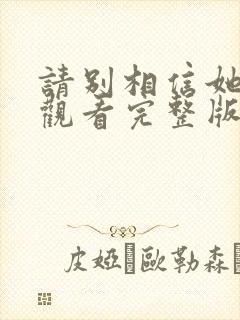 請別相信她
觀看完整版
皮婭 歐勒森